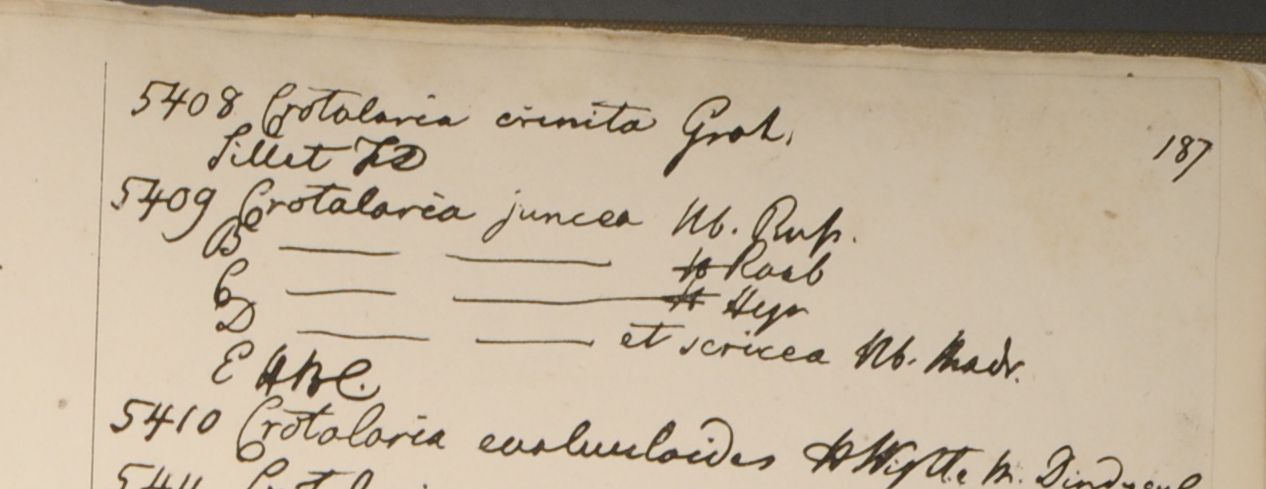 5408 Crotalaria crinita Grah.
187
Sillet FD
5409 Crotalaria juncea Hb. Russ.
B — — H Roxb
C — — H Heyn
D — — et sericea Hb. Madr.
E HBC.
5410 Crotalaria evolvuloides H Wight M. Dindygul